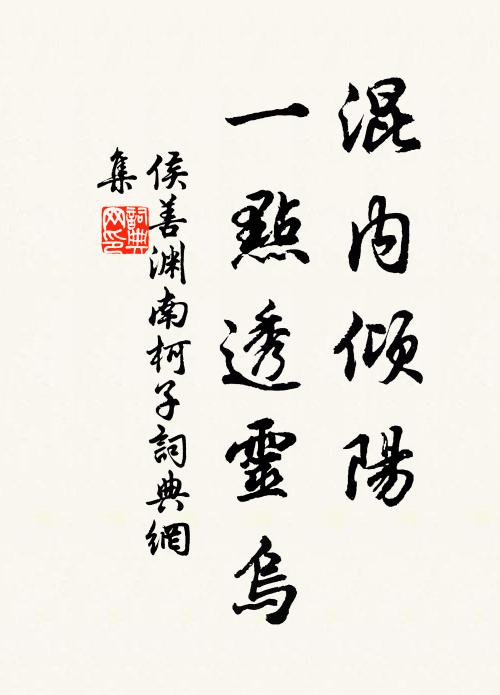 混內傾陽
一點透靈烏
侯善渊南柯子詞典網
集
詞典網印